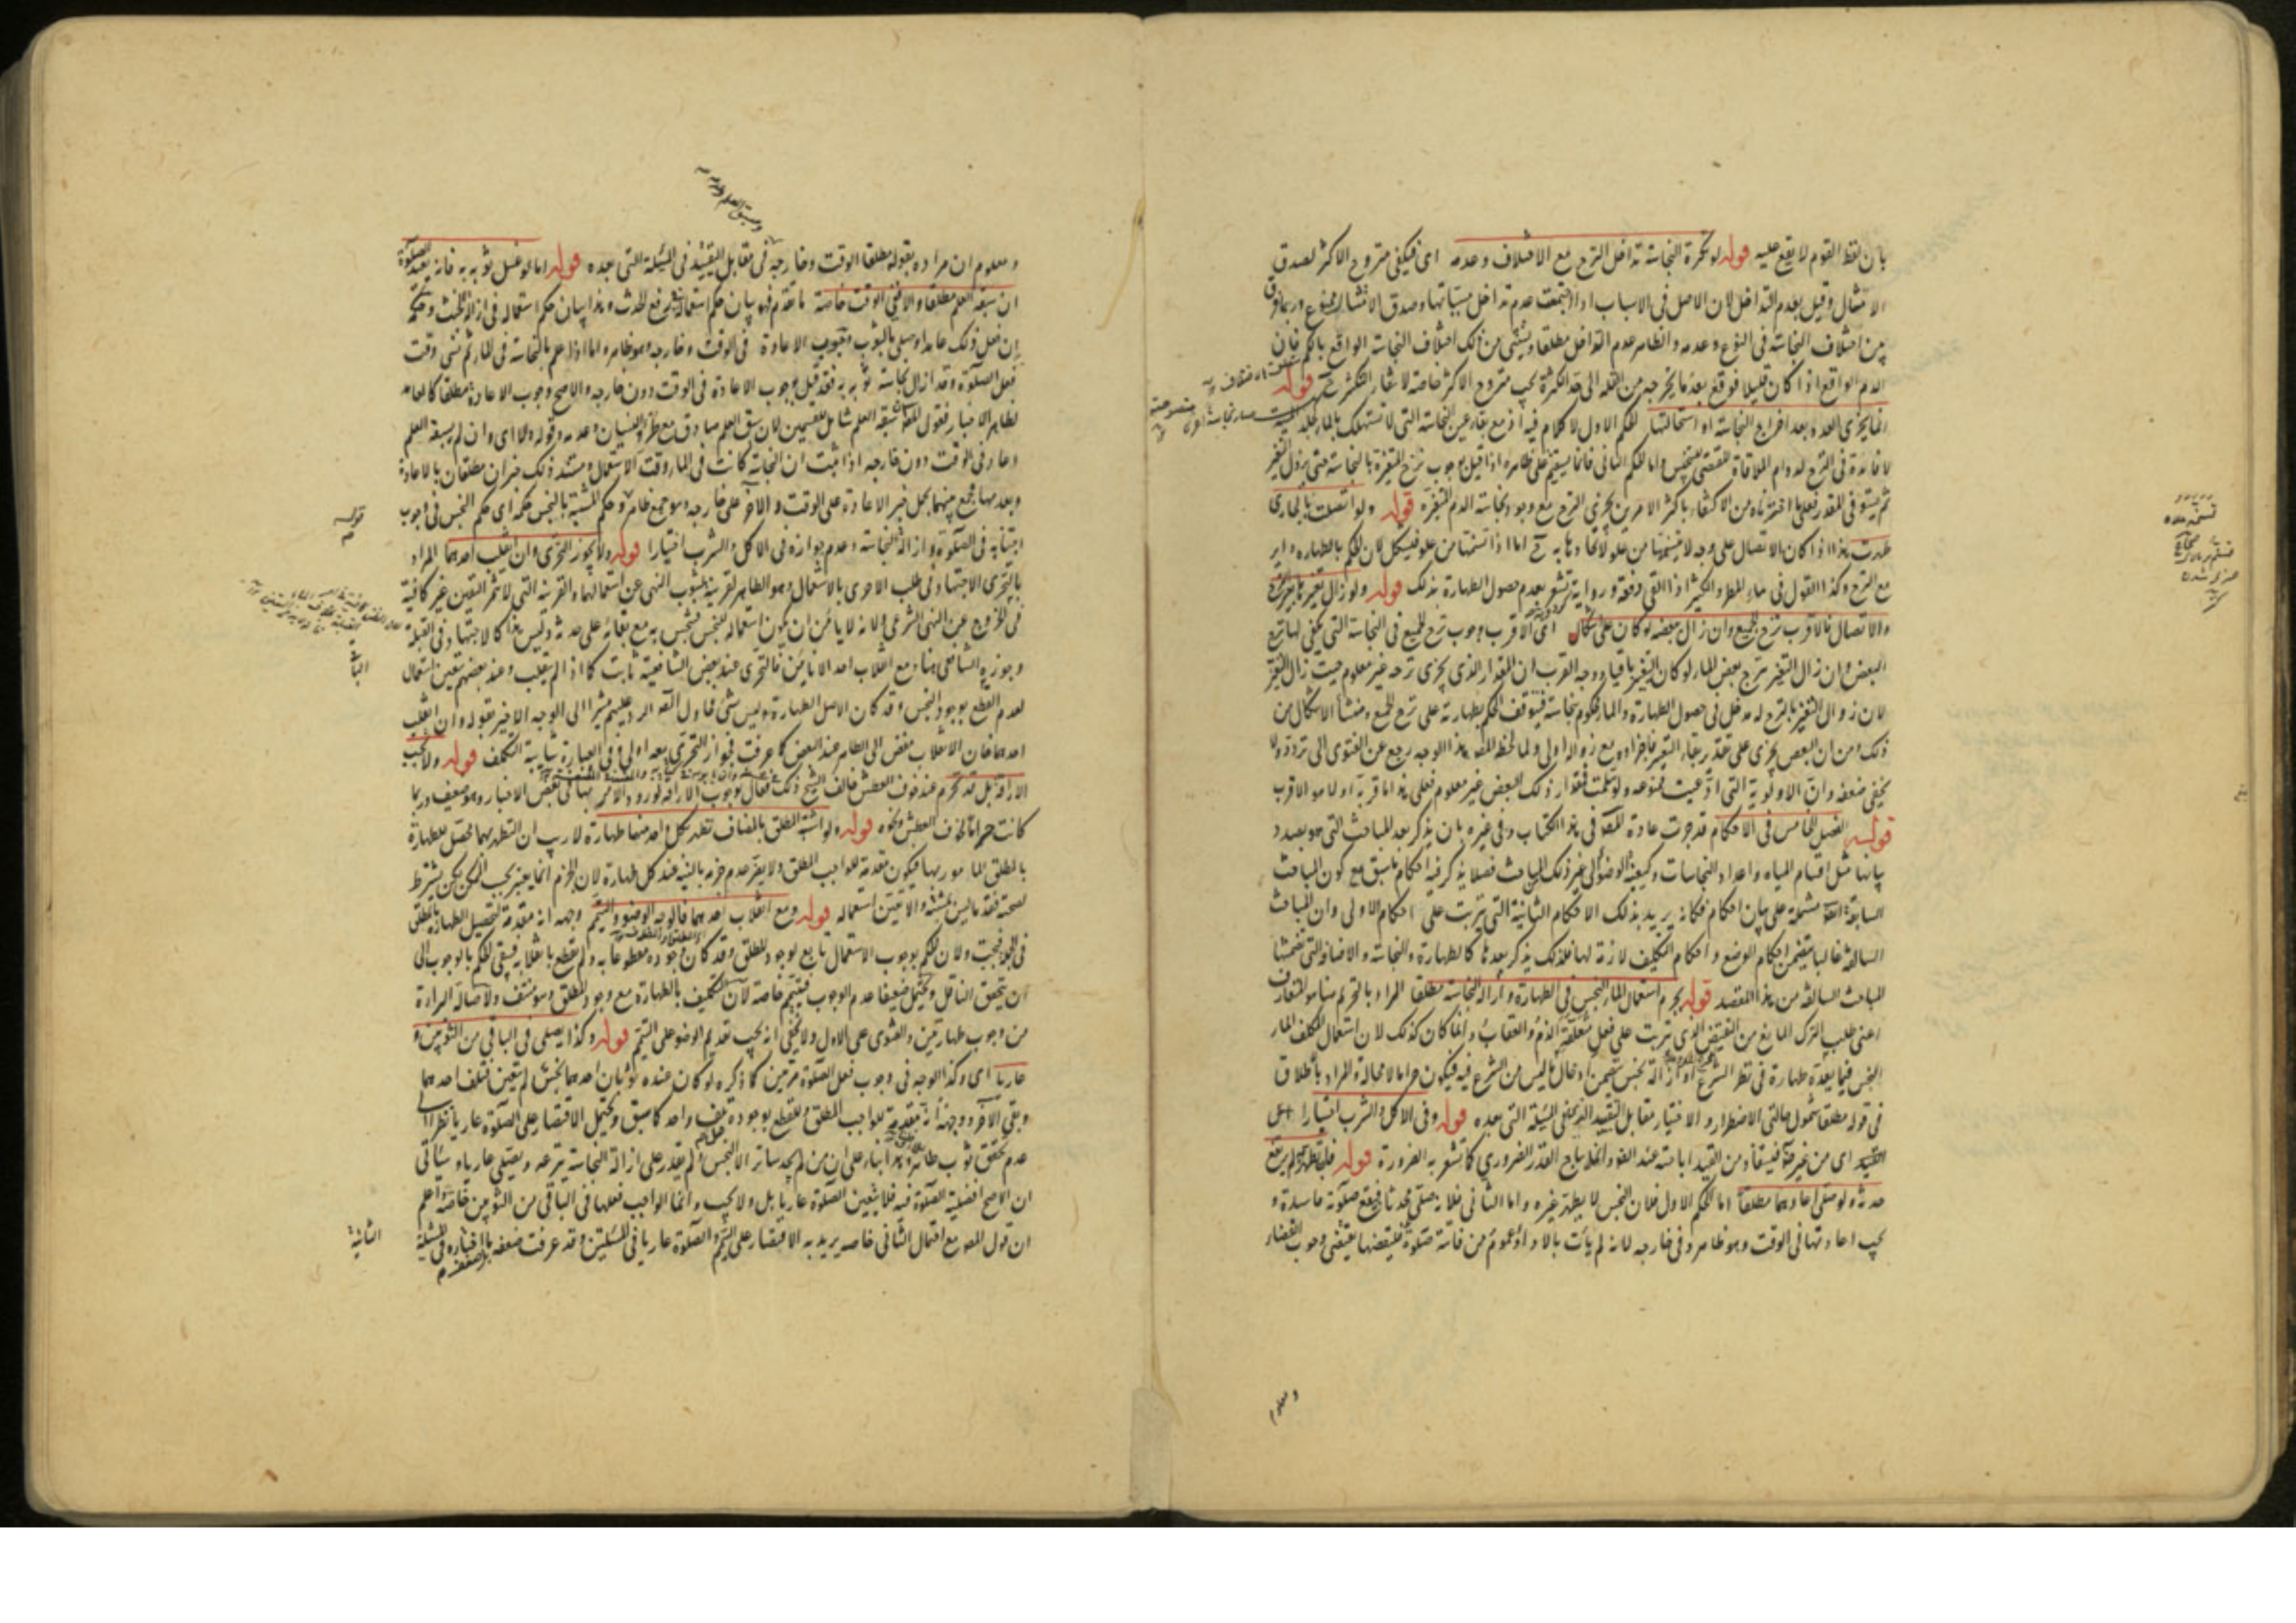 بان لفظ القوم لا يقع عليه قوله لو تكثرة النجاسة تداخل النزح مع الاختلاف وعدمه اى فيكفى منزوح الاكثر لصدق
الامتثال وقيل بعدم التداخل لان الاصل فى الاسباب اذا اجتمعت عدم تداخل مسبباتها وصدق الامتثال ممنوع وربما فرق
بين اختلاف النجاسة فى النوع وعدمه والظاهر عدم التداخل مطلقا ويستثنى من ذلك اختلاف النجاسة الواقع بالكم فان
الدم الواقع اذا كان قليلا فوقع بعده ما يخرجه من القلة الى حد الكثرة يجب منزوح الاكثر خاصة قوله
انما يجزى العدد بعد اخراج النجاسة او استحالتها الحكم الاول لا كلام فيه اذ مع بقاء عين النجاسة التى لا تستهلك بالماء
لا فائدة فى النزح لدوام الملاقاة المقتضى للتنجيس واما الحكم الثانى فانما يستقيم على ظاهره اذا قيل بوجوب نزح المتغيرة بالنجاسة حتى يزول التغير
ثم يستوفى المقدر فعلى ما اخترناه من الاكتفاء باكثر الامرين يجزى النزح مع وجود نجاسة الدم المتغيرة قوله ولو اتصلت بالجارى
طهرت هذا اذا كان الاتصال على وجه لا يتسنمها من علو لاتحادهما به ح اما اذا تسنمها من علو فيشكل لان الحكم بالطهارة داير
مع النزح وكذا القول فى ماء المطر والكثير اذا القى دفعة ورواية تشعر بعدم حصول الطهارة بذلك قوله ولو زال تغيرها بغير النزح
والاتصال فالاقرب نزح الجميع وان زال ببعضه لو كان على اشكال اى الاقرب وجوب نزح الجميع فى النجاسة التى يكفى لها نزح
البعض وان زال التغير بنزح بعض الماء لو كان التغير باقيا ووجه القرب ان المقدار الذى يجزى نزحه غير معلوم حيث زال التغير
لان زوال التغير بالنزح له مدخل فى حصول الطهارة والماء محكوم بنجاسته فيتوقف الحكم بطهارته على نزح الجميع ومنشأ الاشكال من
ذلك ومن ان البعض يجزى على تقدير بقاء التغير فاجزاؤه مع زواله اولى ولما لحظ المصـ هذا الوجه رجع عن الفتوى الى تردد ولا
يخفى ضعفه وان الاولوية التى ادعيت ممنوعة ولو سلمت فمقدار ذلك البعض غير معلوم فعلى هذا ما قربه اولا هو الاقرب
قوله الفصل الخامس فى الاحكام قد جرت عادة المصـ فى هذا الكتاب وفى غيره بان يذكر بعد المباحث التى هو بصدد
بيانها مثل اقسام المياه واعداد النجاسات وكيفية الوضوء الى غير ذلك من المباحث فصلا يذكر فيه احكام ما سبق مع كون المباحث
السابقة ايضا مشتملة على بيان احكام فكانه يريد بذلك الاحكام الثانية التى ترتبت على احكام الاولى وان المباحث
السالفة غالبا يتضمن احكام الوضع واحكام التكليف لازمة لها فلذلك يذكر بعدها كالطهارة والنجاسة والاضافة التى تضمنتها
المباحث السالفة من هذا المقصد قوله يحرم استعمال الماء النجس فى الطهارة وازالة النجاسة مطلقا المراد بالتحريم هنا هو المتعارف
اعنى طلب الترك المانع من النقيض الذى يترتب على فعل متعلقه الذم والعقاب وانما كان كذلك لان استعمال المكلف الماء
النجس فيما يعده طهارة فى نظر الشرع او ازالة نجس يتضمن ادخال ما ليس من الشرع فيه فيكون حراما لا محالة والمراد بالاطلاق
فى قوله مطلقا شمول حالتى الاضطرار والاختيار مقابل التقييد الذى فى المسئلة التى بعده قوله وفى الاكل والشرب اختيارا
اى من غير ضرورة فيستفاد من القيد اباحته عند الضرورة وانما يباح القدر الضرورى كما تشعر به الضرورة قوله فلو تطهر به لم يرتفع
حدثه ولو صلى اعادهما مطلقا اما الحكم الاول فلان النجس لا يطهر غيره واما الثانى فلانه صلى محدثا فيقع صلوته فاسدة و
يجب اعادتها فى الوقت وهو ظاهر وفى خارجه لانه لم يأت بالاداء وعموم من فاتته صلوة فليقضها يقتضى وجوب القضاء
ومعلوم
ومعلوم ان مراده بقوله مطلقا الوقت وخارجه فى مقابل التقييد فى المسئلة التى بعده قوله اما لو غسل ثوبه به فانه يعيد الصلوة
ان سبقه العلم مطلقا والا ففى الوقت خاصة ما تقدم فهو بيان حكم استعماله فى رفع الحدث وهذا بيان حكم استعماله فى ازالة الخبث وحكمه
ان فعل ذلك عامدا وصلى بالثوب وجوب الاعادة فى الوقت وخارجه وهو ظاهر واما اذا علم بالنجاسة فى الماء ثم نسى وقت
فعل الصلوة وقد ازال نجاسة ثوبه به فقد قيل بوجوب الاعادة فى الوقت دون خارجه والاصح وجوب الاعادة مطلقا كالعامد
لظاهر الاخبار فقول المصـ سبقه العلم شامل للقسمين لان سبق العلم صادق مع طرو النسيان وعدمه وقوله والا اى وان لم يسبقه العلم
اعاد فى الوقت دون خارجه اذا ثبت ان النجاسة كانت فى الماء وقت الاستعمال ومستند ذلك خبران مطلقان بالاعادة
وبعدمها جمع بينهما بحمل خبر الاعادة على الوقت والاخر على خارجه وهو جمع ظاهر وحكم المشتبه بالنجس حكمه اى حكم النجس فى وجوب
اجتنابه فى الصلوة وازالة النجاسة وعدم جوازه فى الاكل والشرب اختيارا قوله ولا يجوز التحرى وان انقلب احدهما المراد
بالتحرى الاجتهاد فى طلب الاحرى بالاستعمال وهو الطاهر لقرينة لثبوت النهى عن استعمالهما والقرينة التى لا تثمر اليقين غير كافية
فى الخروج عن النهى الشرعى ولانه لا يأمن ان يكون استعماله للنجس فينجس به مع بقائه على حدثه وليس هذا كالاجتهاد فى القبلة
وجوزه الشافعى هنا ومع انقلاب احد الانائين فالتحرى عند بعض الشافعية ثابت كما اذا لم ينقلب وعند بعضهم يتعين استعمال
لعدم القطع بوجود النجس وقد كان الاصل الطهارة وليس بشىء فحاول المصـ الرد عليهم مشيرا الى الوجه الاخير بقوله وان انقلب
احدهما فان الانقلاب مفض الى الطاهر عند البعض كما عرفت فجواز التحرى بعده اولى وفى العبارة شايبة التكلف قوله ولا يجب
الاراقة بل قد تحرم عند خوف العطش خالف الشيخ فى ذلك فقال بوجوب الاراقة لورود الامر بها فى بعض الاخبار وهو ضعيف وربما
كانت حراما لخوف العطش ونحوه قوله ولو اشتبه المطلق بالمضاف تطهر بكل واحد منهما طهارة لا ريب ان التطهر بهما محصل للطهارة
بالمطلق المأمور بها فيكون مقدمة للواجب المطلق ولا يضر عدم جزمه بالنية عند كل طهارة لان الجزم انما يعتبر بحسب الممكن لكن يشترط
لصحته فقد ما ليس بمشتبه والا تعين استعماله قوله ومع انقلاب احدهما فالوجه الوضوء والتيمم وجهه انه مقدمة لتحصيل الطهارة بالمطلق
ولان الحكم بوجوب الاستعمال تابع لوجود المطلق وقد كان وجوده مقطوعا به ولم يقطع بانقلابه فيبقى الحكم بالوجوب الى
ان يتحقق الناقل ويحتمل ضعيفا عدم الوجوب فيتيمم خاصة لان التكليف بالطهارة مع وجود المطلق وهو منتف ولاصالة البراءة
من وجوب طهارتين والفتوى على الاول ولا يخفى انه يجب تقديم الوضوء على التيمم قوله وكذا يصلى فى الباقى من الثوبين و
عاريا اى وكذا الوجه فى وجوب فعل الصلوة مرتين كما ذكره لو كان عنده ثوبان احدهما نجس لم يتعين فتلف احدهما
وبقى الاخر ووجهه انه مقدمة للواجب المطلق وللقطع بوجوده تلف واحد كما سبق ويحتمل الاقتصار على الصلوة عاريا نظرا الى
عدم تحقق ثوب طاهر وهذا بناء على ان من لم يجد ساتر الا النجس ولم يقدر على ازالة النجاسة ينزعه ويصلى عاريا وسيأتى
ان الاصح افضلية الصلوة فيه فلا يتعين الصلوة عاريا بل ولا يجب وانما الواجب فعلها فى الباقى من الثوبين خاصة واعلم
ان قول المصـ مع احتمال الثانى خاصة يريد به الاقتصار على التيمم والصلوة عاريا فى المسئلتين وقد عرفت ضعفه باختياره فى المسئلة
الثانية